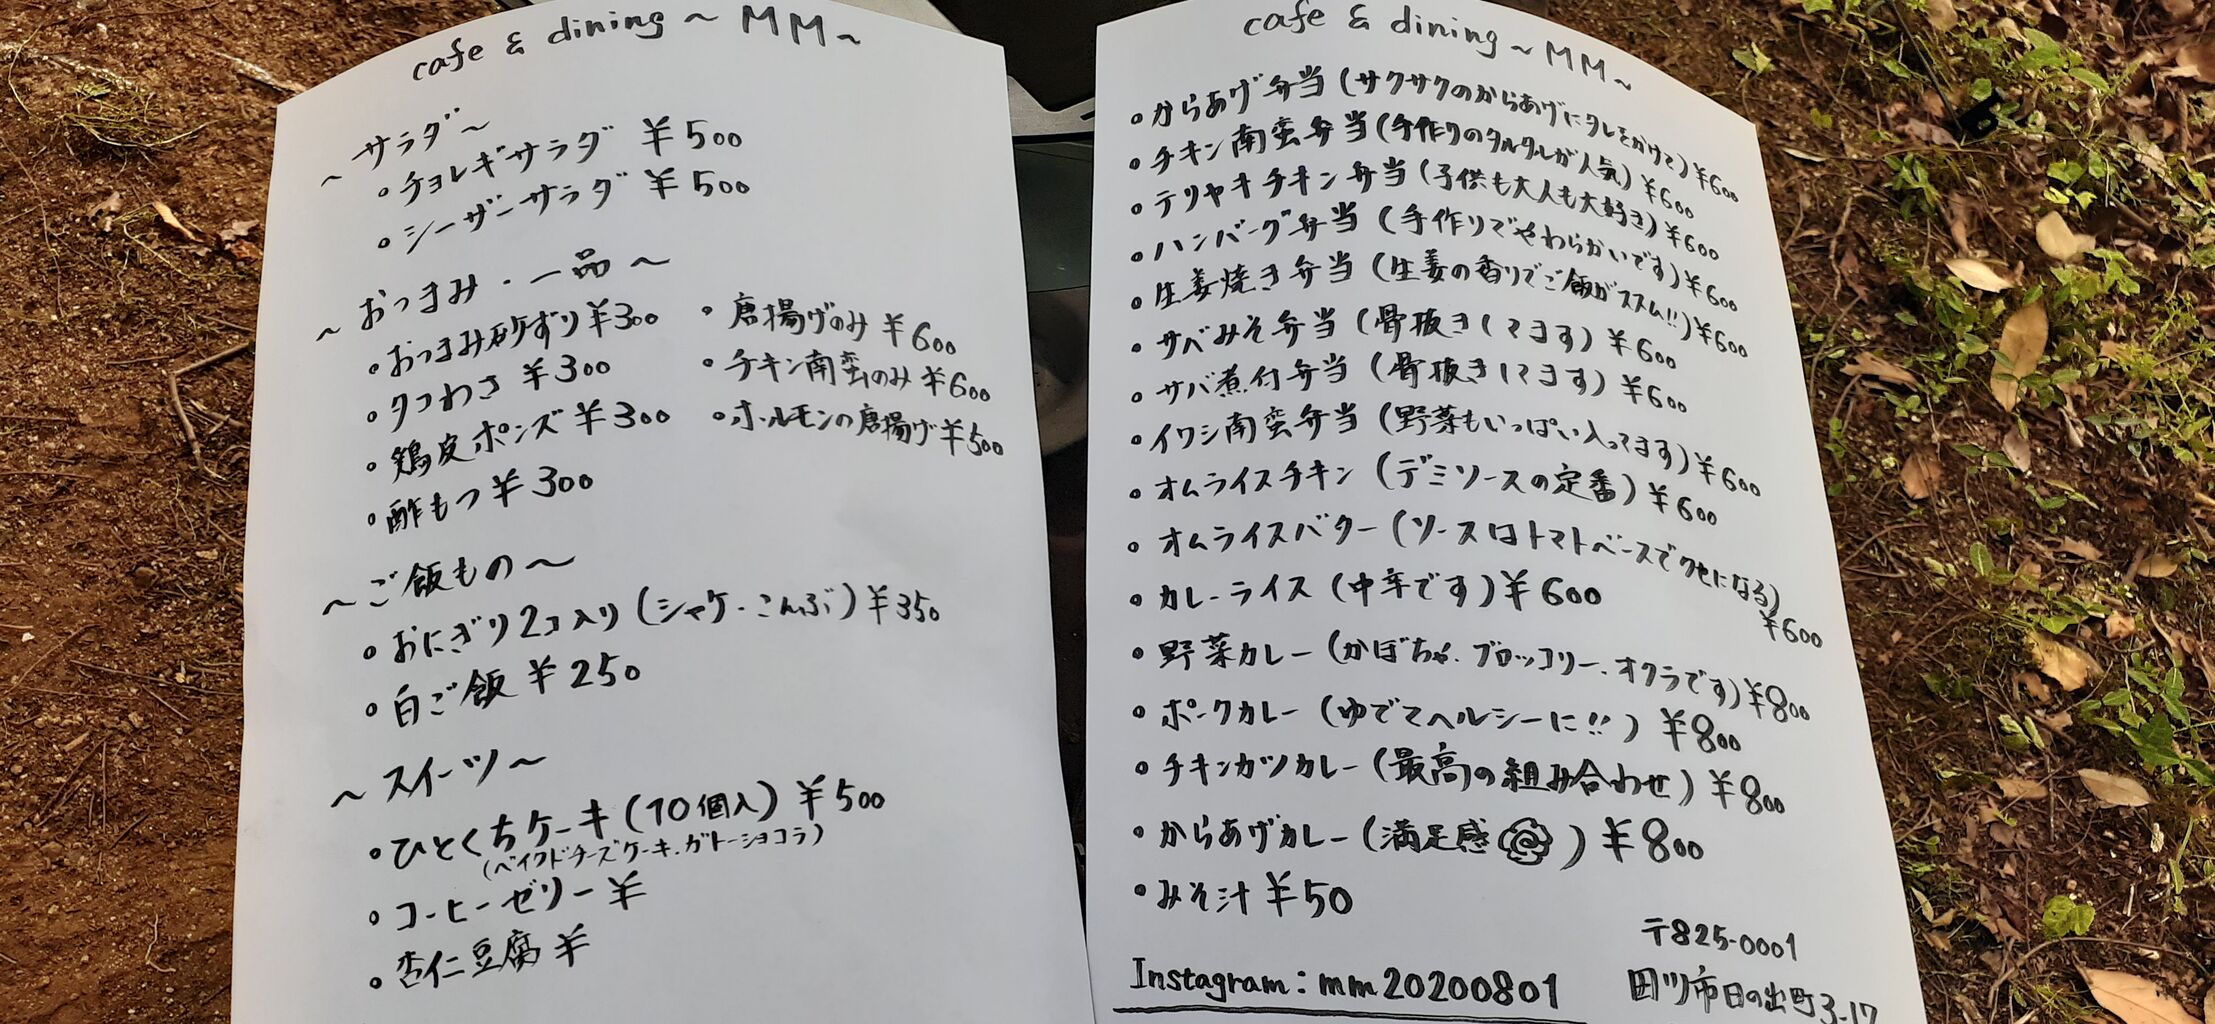 cafe & dining ～ MM～
～サラダ～
・チョレギサラダ ¥500
・シーザーサラダ ¥500
～おつまみ・一品～
・おつまみ砂ずり¥300
・タコわさ ¥300
・鶏皮ポンズ ¥300
・酢もつ¥300
・唐揚げのみ ¥600
・チキン南蛮のみ ¥600
・ホルモンの唐揚げ¥500
～ご飯もの～
・おにぎり2コ入り(シャケ・こんぶ)¥350
・白ご飯 ¥250
～スイーツ～
・ひとくちケーキ(10個入) ¥500
(ベイクドチーズケーキ・ガトーショコラ)
・コーヒーゼリー ¥
・杏仁豆腐 ¥
cafe & dining ～MM～
・からあげ弁当(サクサクのからあげにタレをかけて)¥600
・チキン南蛮弁当(手作りのタルタルが人気)¥600
・テリヤキチキン弁当(子供も大人も大好き)¥600
・ハンバーグ弁当(手作りでやわらかいです)¥600
・生姜焼き弁当(生姜の香りでご飯がススム!!)¥600
・サバみそ弁当(骨抜きしてます)¥600
・サバ煮付弁当(骨抜きしてます)¥600
・イワシ南蛮弁当(野菜もいっぱい入ってます)¥600
・オムライスチキン(デミソースの定番)¥600
・オムライスバター(ソースはトマトベースでクセになる)
¥600
・カレーライス(中辛です)¥600
・野菜カレー(かぼちゃ・ブロッコリー・オクラです)¥800
・ポークカレー(ゆでてヘルシーに!!)¥800
・チキンカツカレー(最高の組み合わせ)¥800
・からあげカレー(満足感)¥800
・みそ汁 ¥50
〒825-0001
Instagram:mm20200801
田川市日の出町3-17